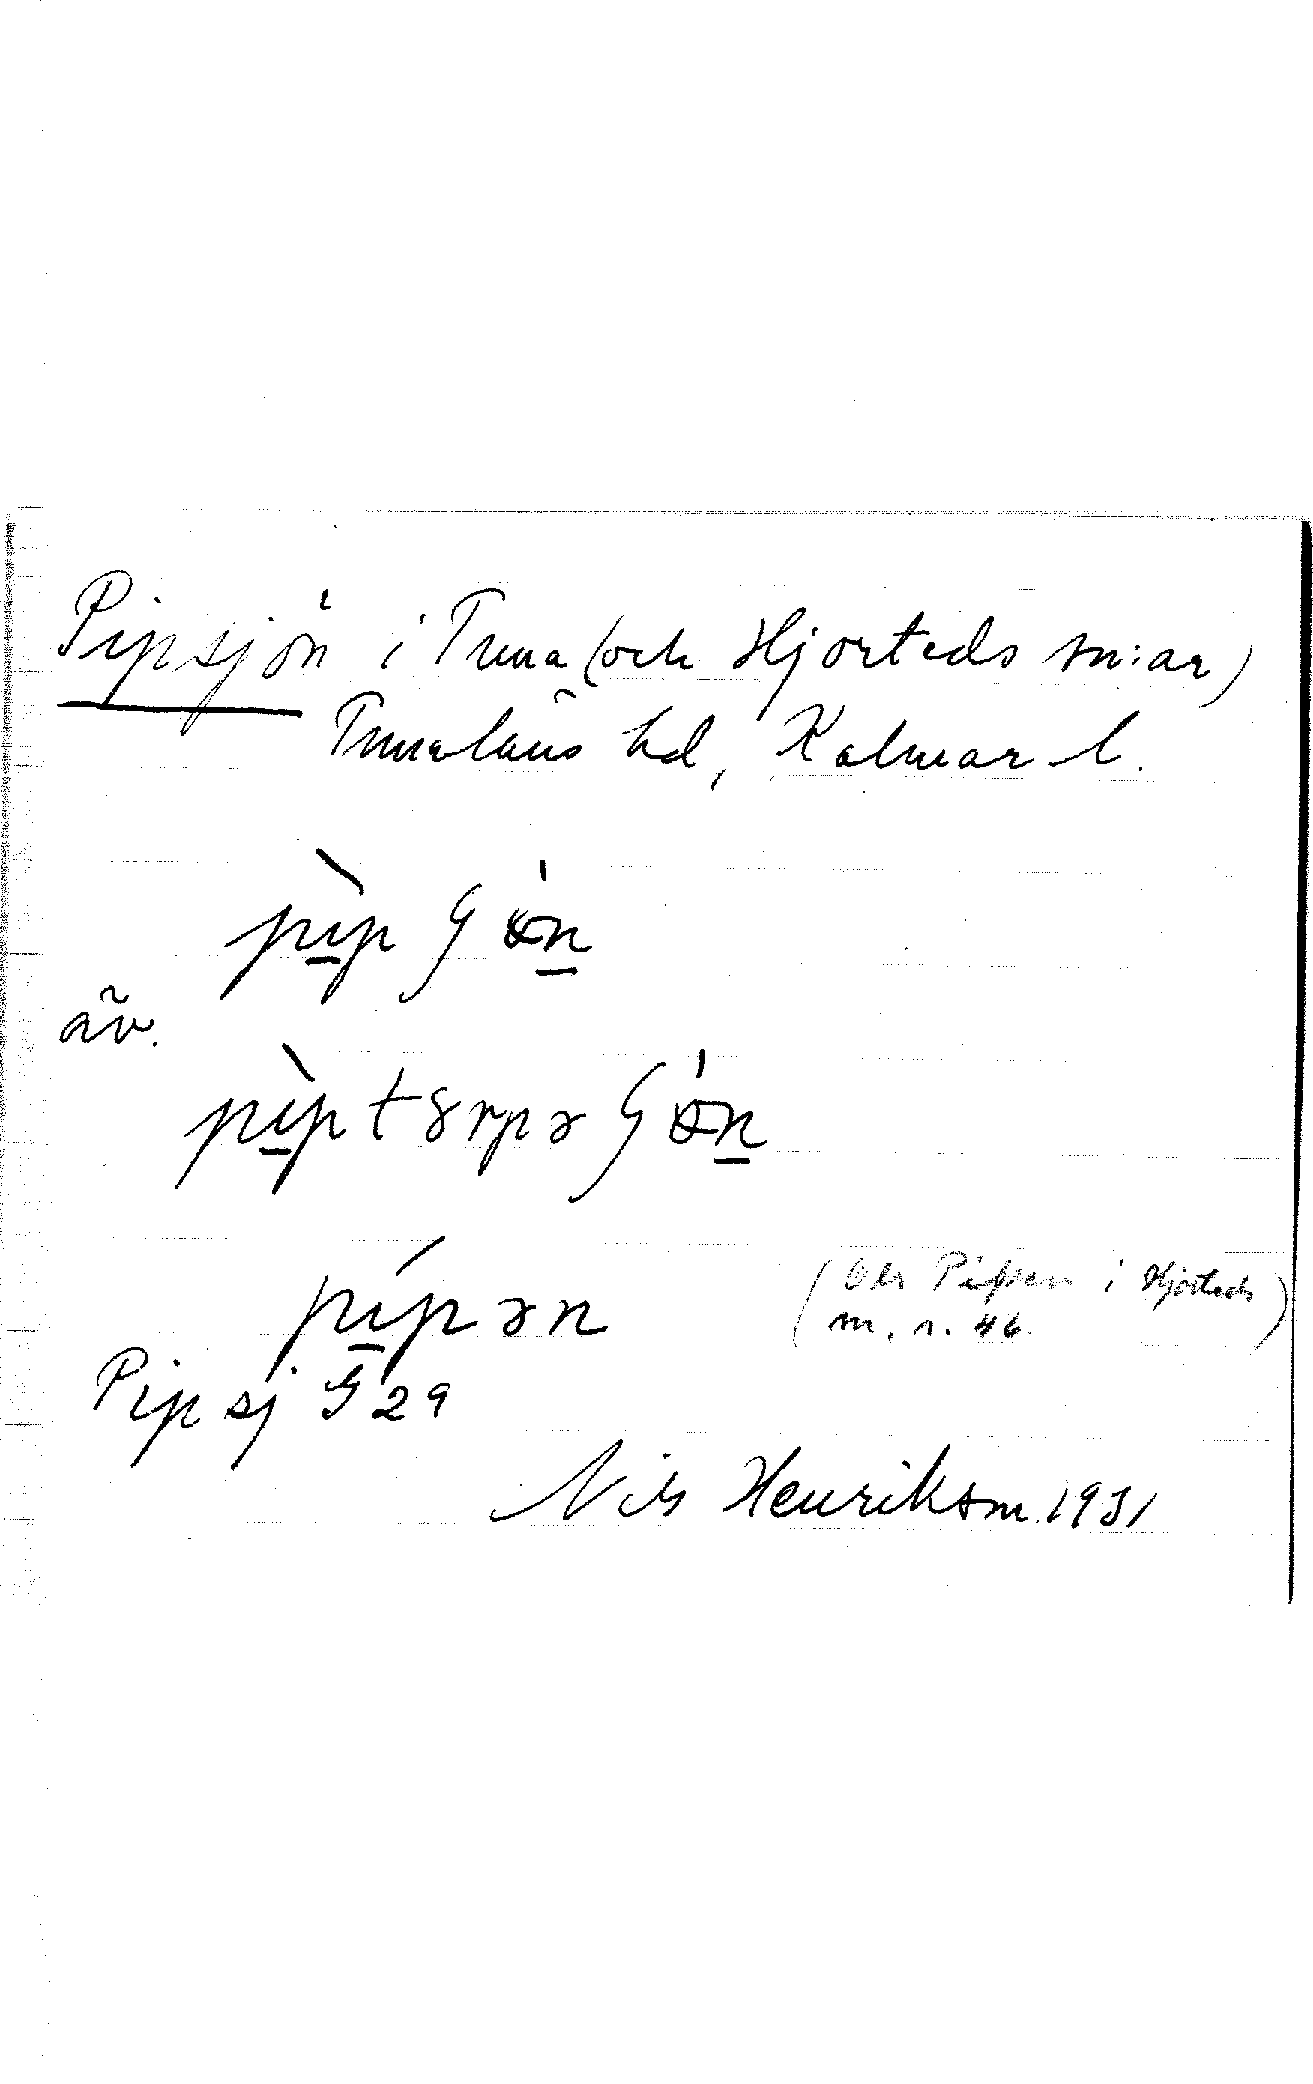 Pipsjön i Tuna (och Hjorteds sn:ar)
Tunaläns hd, Kalmar l.
pìp
äv.
pìp
pípən
(Obs Pipen i Hjorteds
m. s. 46)
Pipsj G 29
Nils Henriksson 1931